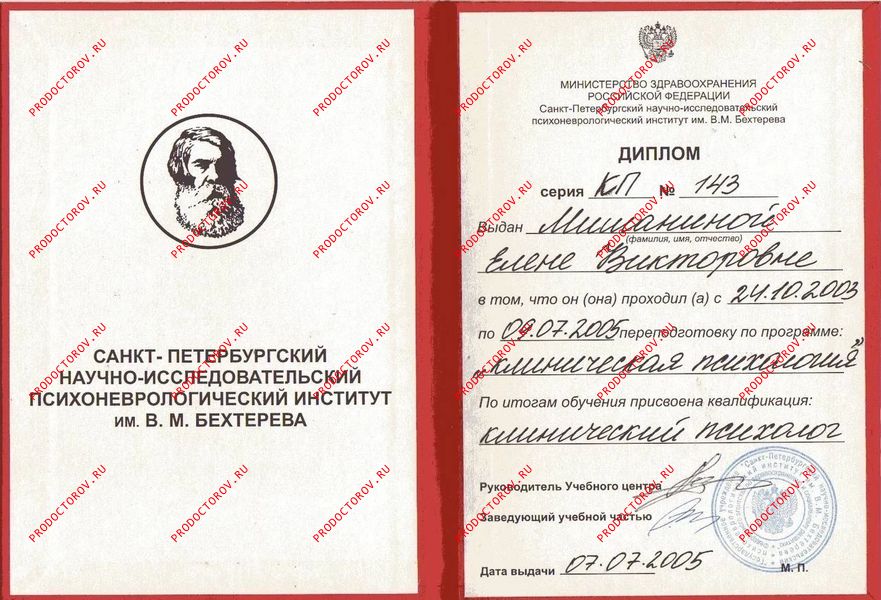 САНКТ- ПЕТЕРБУРГСКИЙ
НАУЧНО-ИССЛЕДОВАТЕЛЬСКИЙ
ПСИХОНЕВРОЛОГИЧЕСКИЙ ИНСТИТУТ
ИМ. В. М. БЕХТЕРЕВА
МИНИСТЕРСТВО ЗДРАВООХРАНЕНИЯ
РОССИЙСКОЙ ФЕДЕРАЦИИ
Санкт-Петербургский научно-исследовательский
психоневрологический институт им. В.М. Бехтерева
ДИПЛОМ
серия КП № 143
Выдан Мишаниной
(фамилия, имя, отчество)
Елене Викторовне
в том, что он (она) проходил (а) с 24.10.2003
по 09.07.2005 переподготовку по программе:
"клиническая психология"
По итогам обучения присвоена квалификация:
клинический психолог
Руководитель Учебного центра
Заведующий учебной частью
Дата выдачи 07.07.2005
М. П.
PRODOCTOROV.RU